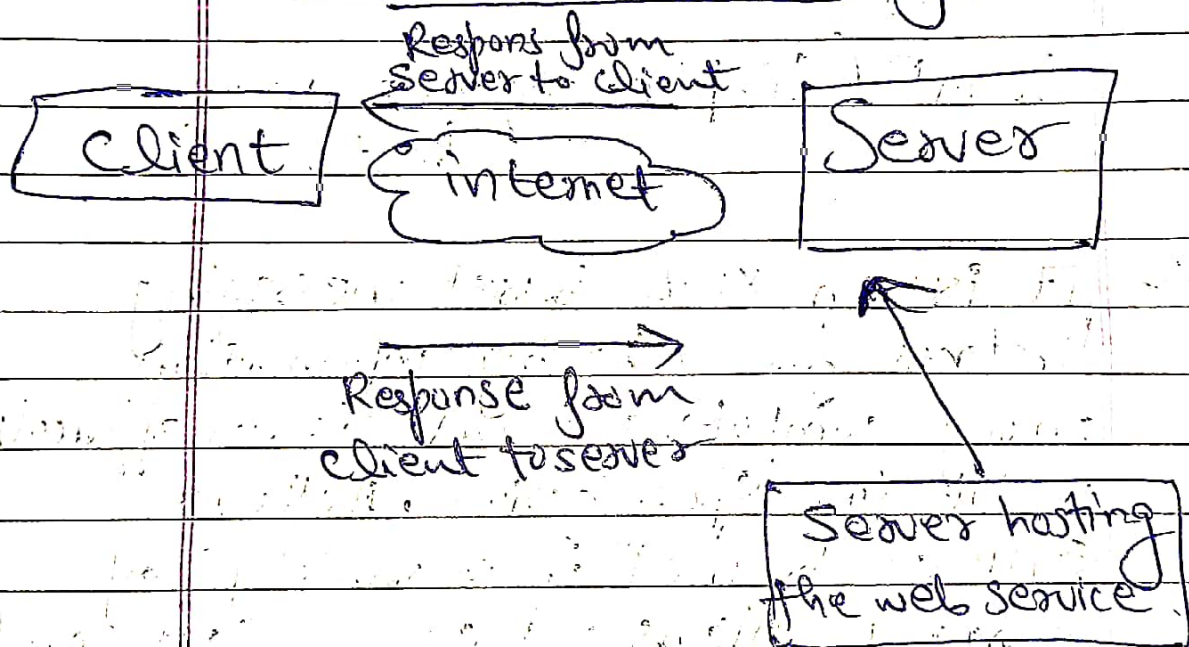 Respons from
server to client
Client
internet
Server
Response from
client to server
Server hosting
the web service